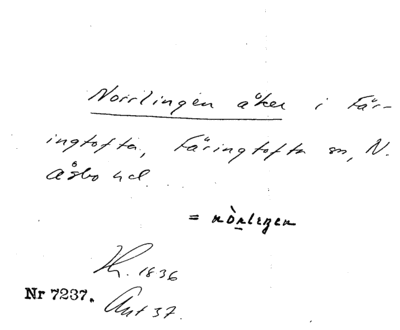 Norrlingen åker i Fär-
ingtofta, Färingtofta sn, N.
Åsbo hd.
= nòṉlegen
Lh. 1836
Nr 7237. Ant 37.